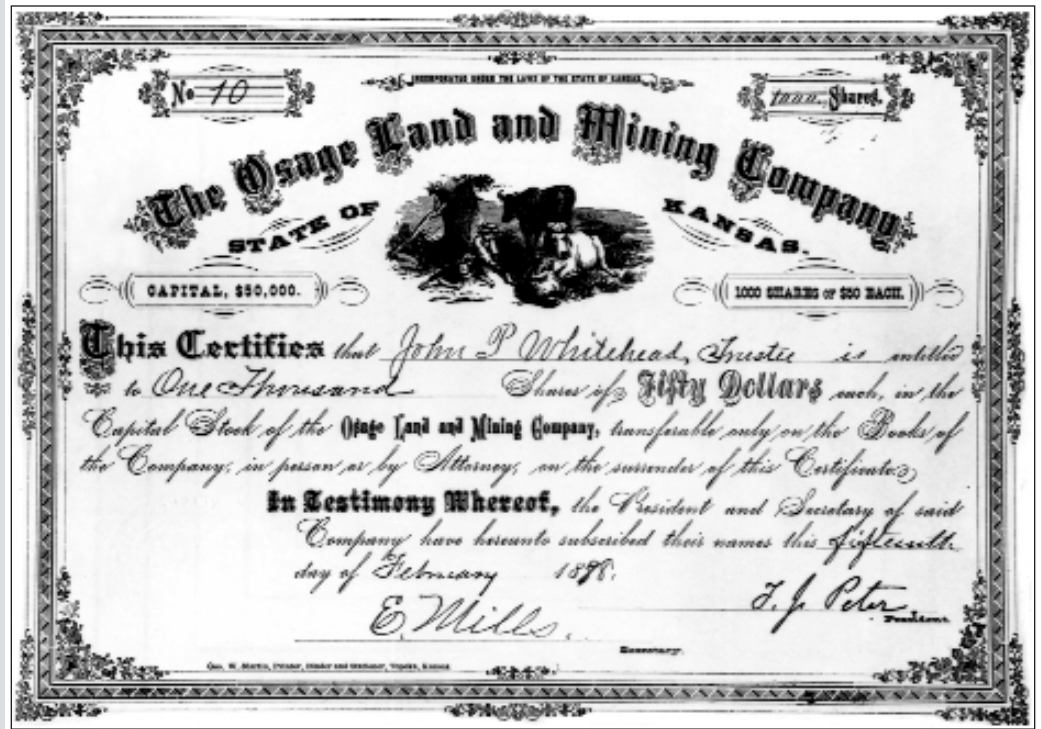 No 10
INCORPORATED UNDER THE LAWS OF THE STATE OF KANSAS
1000 Shares.
The Osage Land and Mining Company
STATE OF KANSAS.
CAPITAL, $50,000.
1000 SHARES OF $50 EACH.
This Certifies that John P Whitehead, Trustee is entitled
to One Thousand Shares of Fifty Dollars each, in the
Capital Stock of the Osage Land and Mining Company, transferable only on the Books of
the Company, in person or by Attorney, on the surrender of this Certificate.
In Testimony Whereof, the President and Secretary of said
Company have hereunto subscribed their names this fifteenth
day of February
E. Mills.
T. J. Peter
President
Secretary.
Geo. W. Martin, Printer, Binder and Stationer, Topeka, Kansas